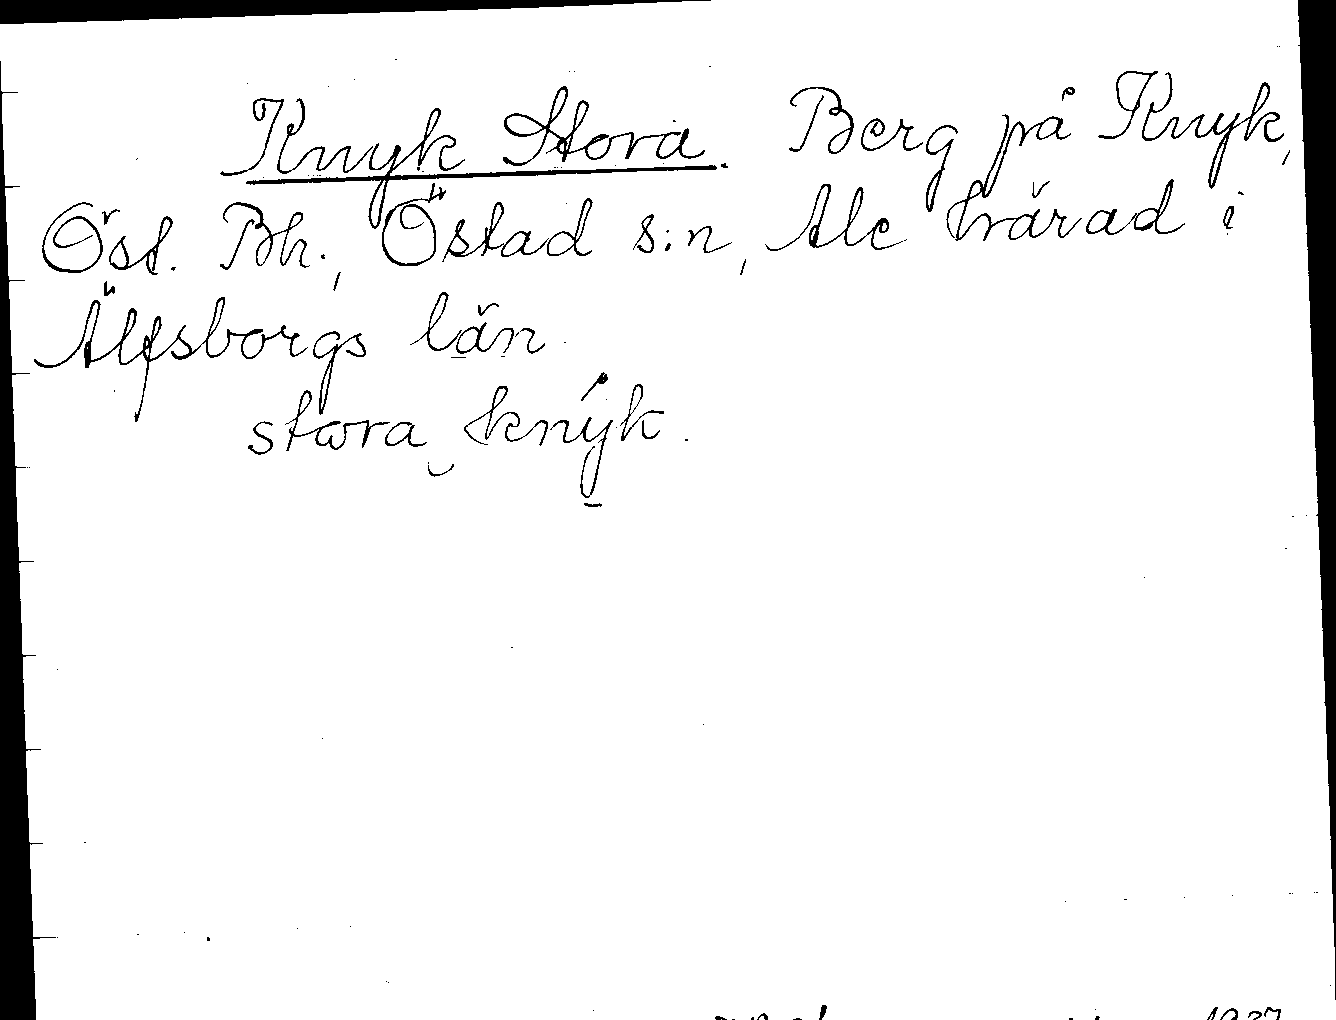 Knyk Stora. Berg på Knyk,
Öst. Bh., Östad s:n, Ale härad i
Älfsborgs län
stora knyk.
1937